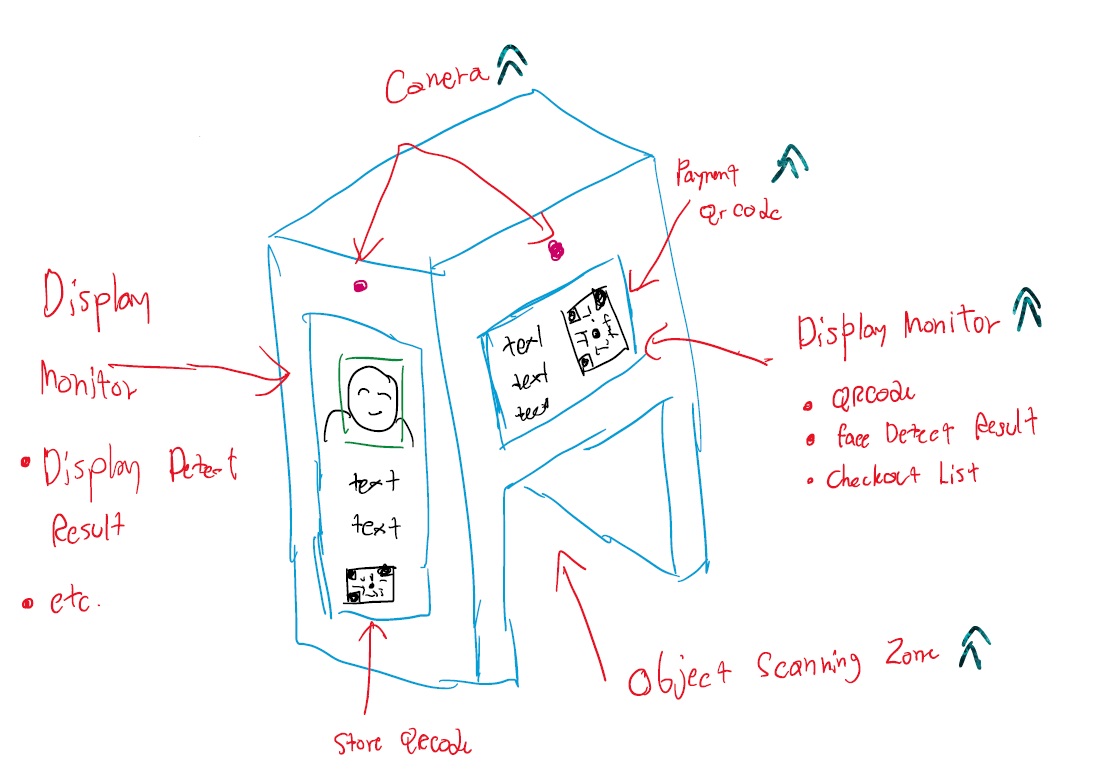 Camera
Payment
Qr code
Display
Monitor
• Display Detect
Result
• etc.
text
text
text
text
text
Display Monitor
• QRCode
• face Detect Result
• Checkout List
Object Scanning Zone
Store QRcode